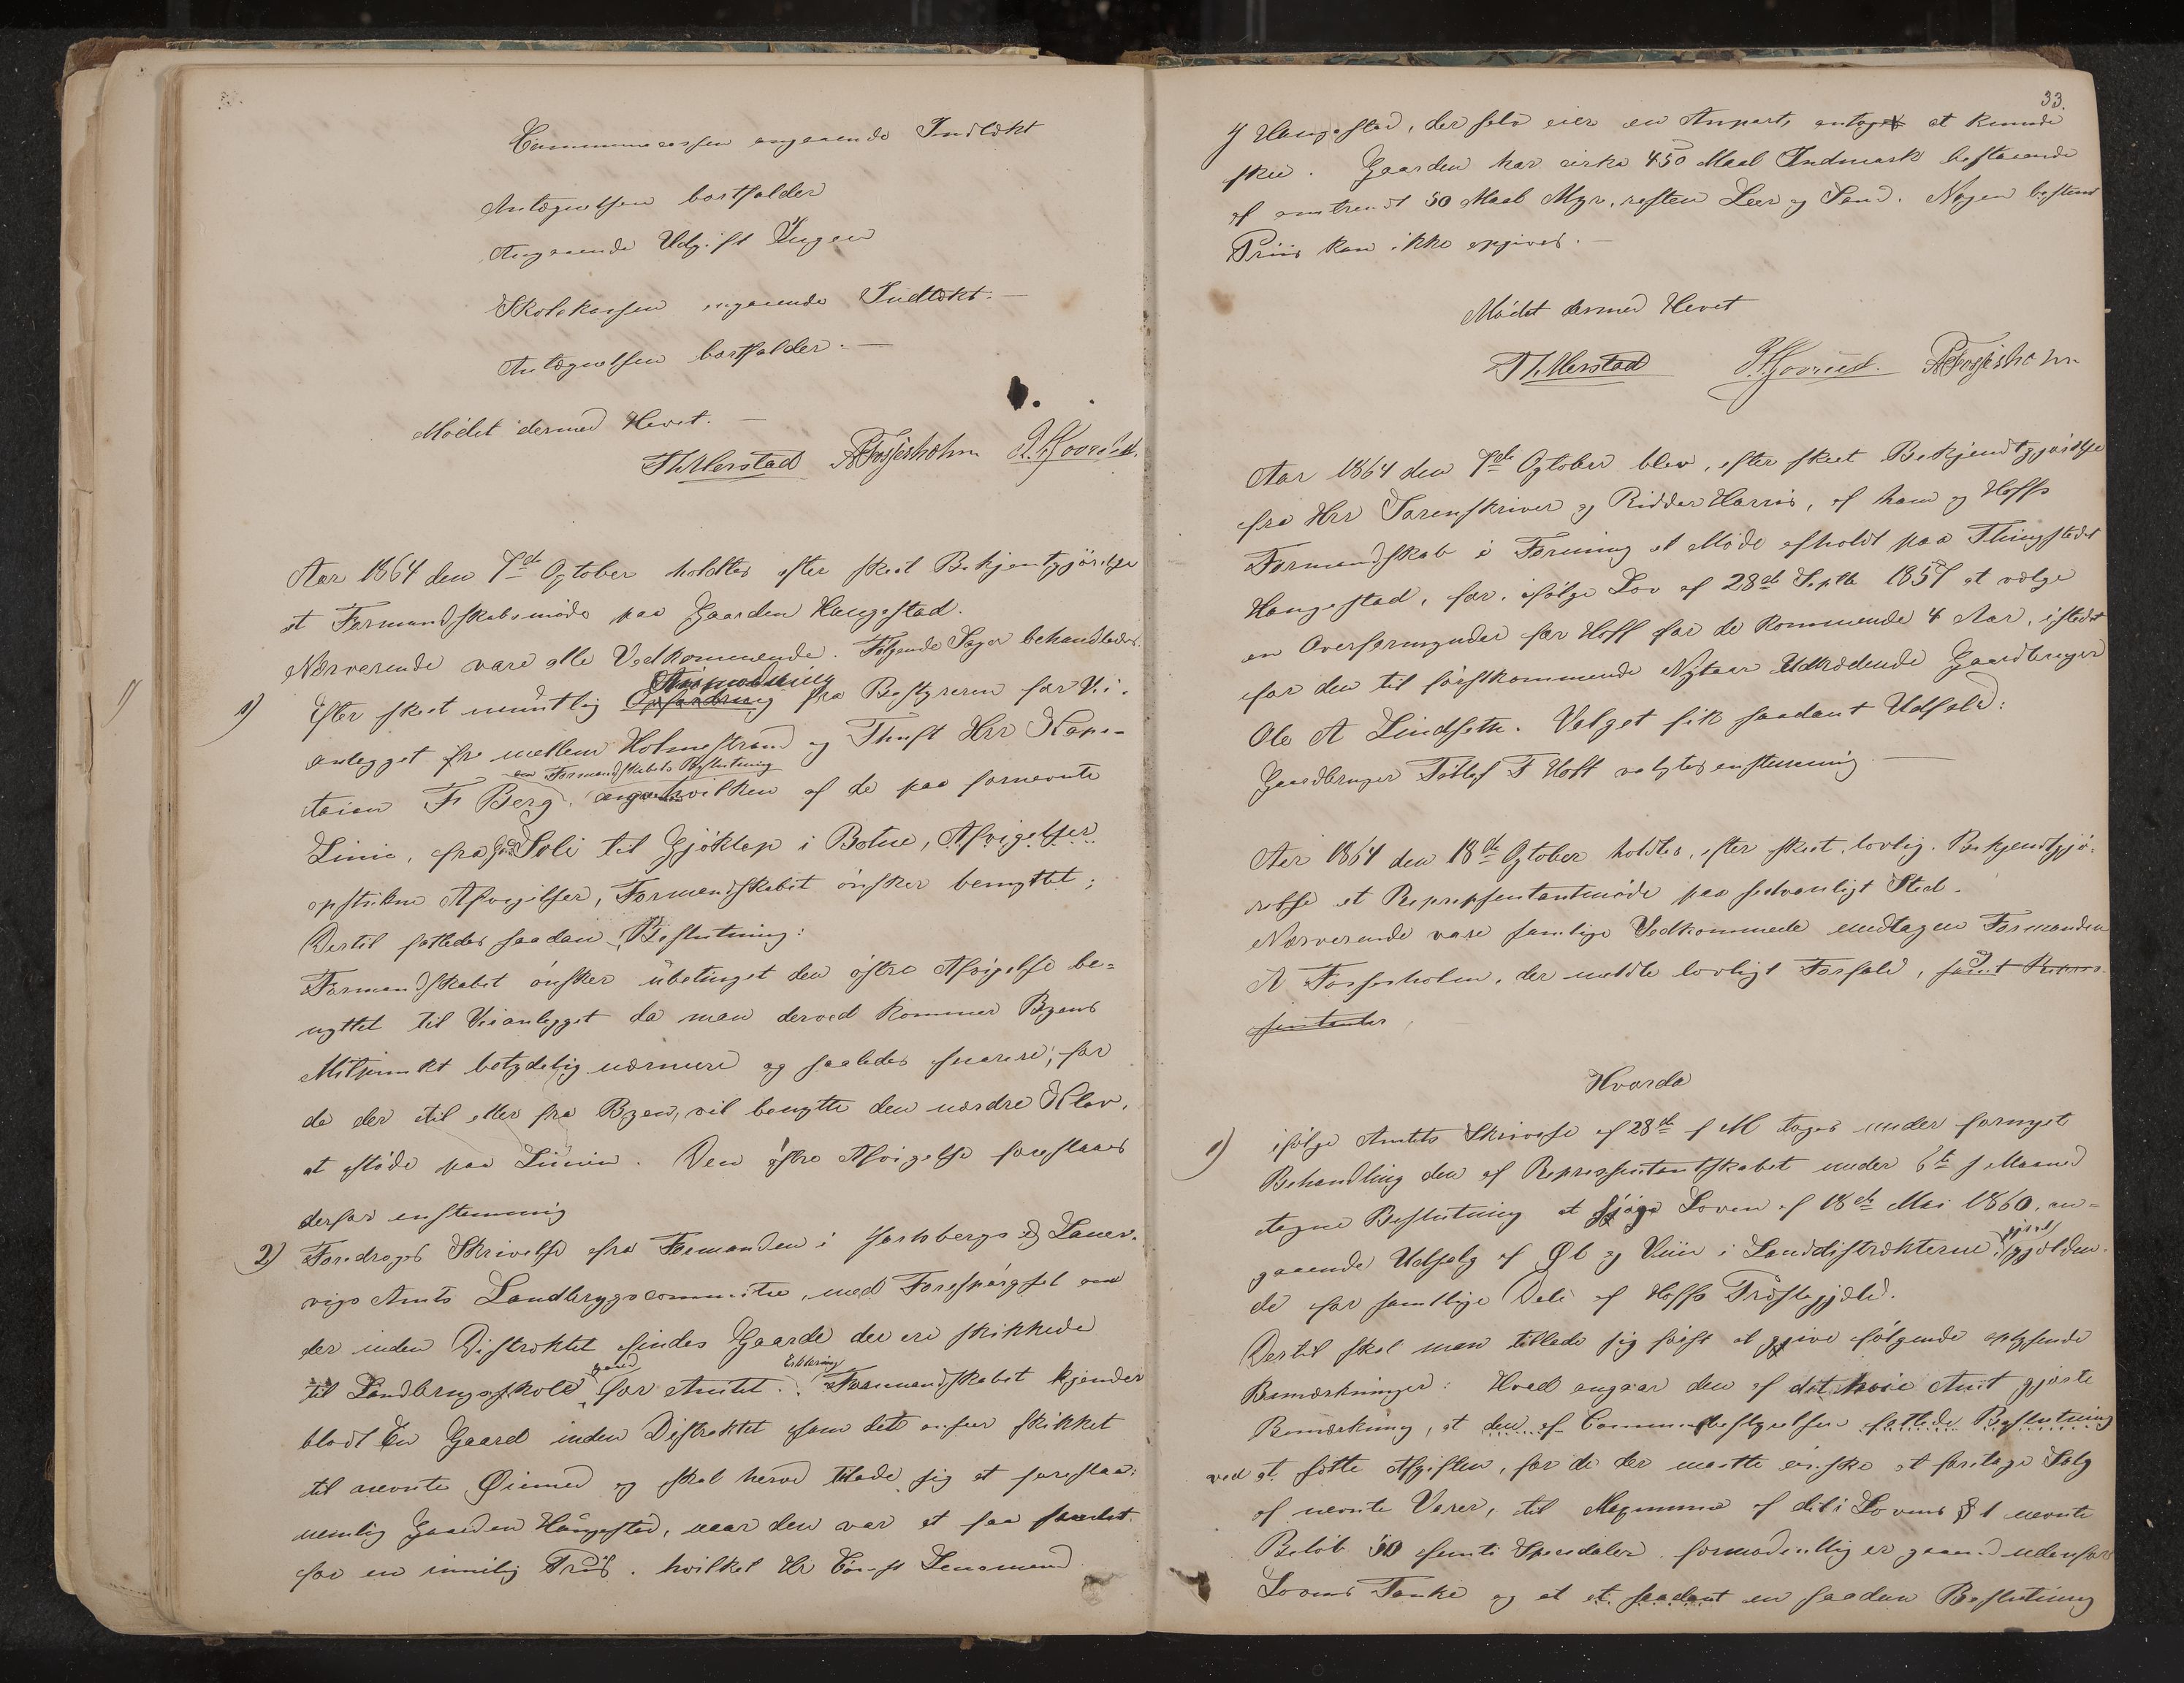 Communecassen angaaende Indtækt
Antegnelsen bortfalder
Angaaende Udgift Ingen
Skolekassen angaaende Indtækt. —
Antegnelsen bortfalder. —
Mödet dermed Hevet. —
Th Ulerstad A Fossesholm
Aar 1864 den 7de Ogtober holdtes efter skeet Bekjentgjörelse
et Formandskabsmöde paa Gaarden Haugestad.
Nærverende vare alle Vedkommende. Følgende Sager behandledes.
1) Efter skeet mundtlig Opfordring Anmodning fra Bestyreren for Vei-
anlegget fra mellem Holmestrand og Thuft Hrr Kapi-
taien Fr Berg, om Formandskabets Beslutning angaaende hvilken af de paa fornevnte
Linie, fra Gd Soli til Gjöklep i Botne, Afvigelser
opstukne Afvigelser, Formandskabet önsker benyttet;
Dertil fattedes saadan Beslutning:
Formandskabet önsker ubetinget den östre Afvigelse be-
nyttet til Veianlegget da man derved kommer Byens
Mitpunkt betydelig nærmere og saaledes snarere, for
de der til eller fra Byen, vil benytte den nordre Klev,
at støde paa Linien. Den östre Afvigelse foreslaaes
derfor enstemmig
2) Foredroges Skrivelse fra Formanden i Jarlsbergs og Laur-
vigs Amts Landbrygscommitee, med Forespørgsel om
der inden Distroktet findes Gaarde der ere skikkede
til Landbrugsskole gaard for Amtet. Erklering Formandskabet kjender
blodt En Gaard inden Distroktet som det anseer skikket
til nevnte Øiemed og skal herved tillade sig at foreslaa:
nemlig Gaarden Haugestad, naar den var at faa
for en rimelig Priis. hvilket Hr Lensmand
33.
J Haugestad, der selv eier en Anpart, antoges at kunde
skee. Gaarden har cirka 450 Maal Indmark bestaaende
af omtrendt 50 Maal Myr, resten Leer og Sand. Nogen bestemt
Priis kan ikke opgives. —
Mödet dermed Hevet
Th Ulerstad A Fossesholm
Aar 1864 den 7de Ogtober blev, efter skeet Bekjendtgjörelse
fra Hrr Sorenskriver og Ridder Harris, af ham og Hoffs
Formandskab i Forening et Möde afholdt paa Thingstedet
Haugestad, for, ifölge Lov af 28de Septbr 1857 at velge
en Overformynder for Hoff for de kommende 4 Aar, istedet
for den til förstkommende Nytaar Udtrædende Gaardbruger
Ole A Lindseth. Valget fik saadant Udfald:
Gaardbruger Tollef T Hoff valgtes enstemmig —
Aar 1864 den 18de Ogtober holdtes, efter skeet lovlig Bekjendtgjö-
relse et Representantmöde paa sedvanligt Sted.
Nærverende vare samtlige Vedkommende undtagen Formanden
A Fossesholm, der meldte lovligt Forfald, samt
Hvorda
1) ifölge Amtets Skrivelse af 28de f M toges under fornyet
Behandling den af Representantskabet under 6te f Maaned
tagne Beslutning at söge Loven af 18de Mai 1860, an-
gaaende Udsalg af Øl og Viin i Landdistrækterne gjort gjælden-
de for samtlige Dele af Hoffs Præstegjæld.
Dertil skal man tillade sig först at give følgende oplysende
Bemærkninger: Hvad angaar den af det höie Amt gjorte
Bemærkning, at den af Communebestyrelsen fattede Beslutning
ved at sætte Afgiften, for de der maatte önske at foretage Salg
af nevnte Varer, til Maximum af det i Lovens § 1 nevnte
Belöb 50 femti Speciedaler formodentlig er gaaende udenfor
Lovens Tanke og at et saadant en saadan Beslutning